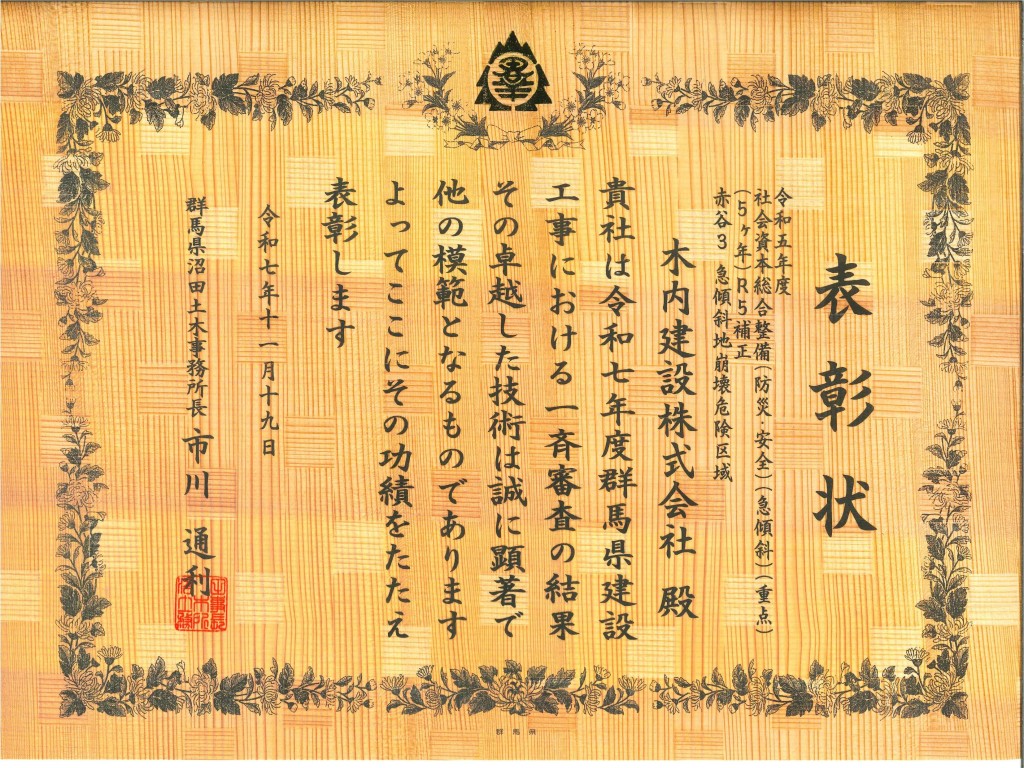 表彰状
令和五年度
社会資本総合整備(防災・安全)(急傾斜)(重点)
(5ヶ年)R5補正
赤谷3 急傾斜地崩壊危険区域
木内建設株式会社 殿
貴社は令和七年度群馬県建設
工事における一斉審査の結果
その卓越した技術は誠に顕著で
他の模範となるものであります
よってここにその功績をたたえ
表彰します
令和七年十一月十九日
群馬県沼田土木事務所長 市川 通利
群馬県